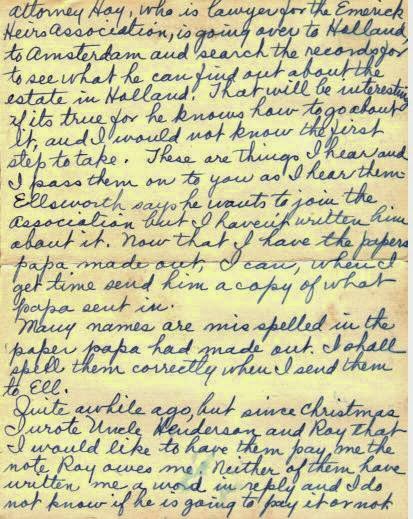 attorney Hoy, who is lawyer for the Emerick
Heirs Association, is going over to Holland,
to Amsterdam and search the records for
to see what he can find out about the
estate in Holland. That will be interesting
if its true for he knows how to go about
it, and I would not know the first
step to take. These are things I hear and
I pass them on to you as I hear them
Ellsworth says he wants to join the
association but I haven't written him
about it. Now that I have the papers
papa made out, I can, when I
get time send him a copy of what
papa sent in.
Many names are mis spelled in the
paper papa had made out. I shall
spell them correctly when I send them
to Ell.
Quite awhile ago, but since Christmas
I wrote Uncle Henderson and Roy that
I would like to have them pay me the
note Roy owes me. Neither of them have
written me a word in reply and I do
not know if he is going to pay it or not